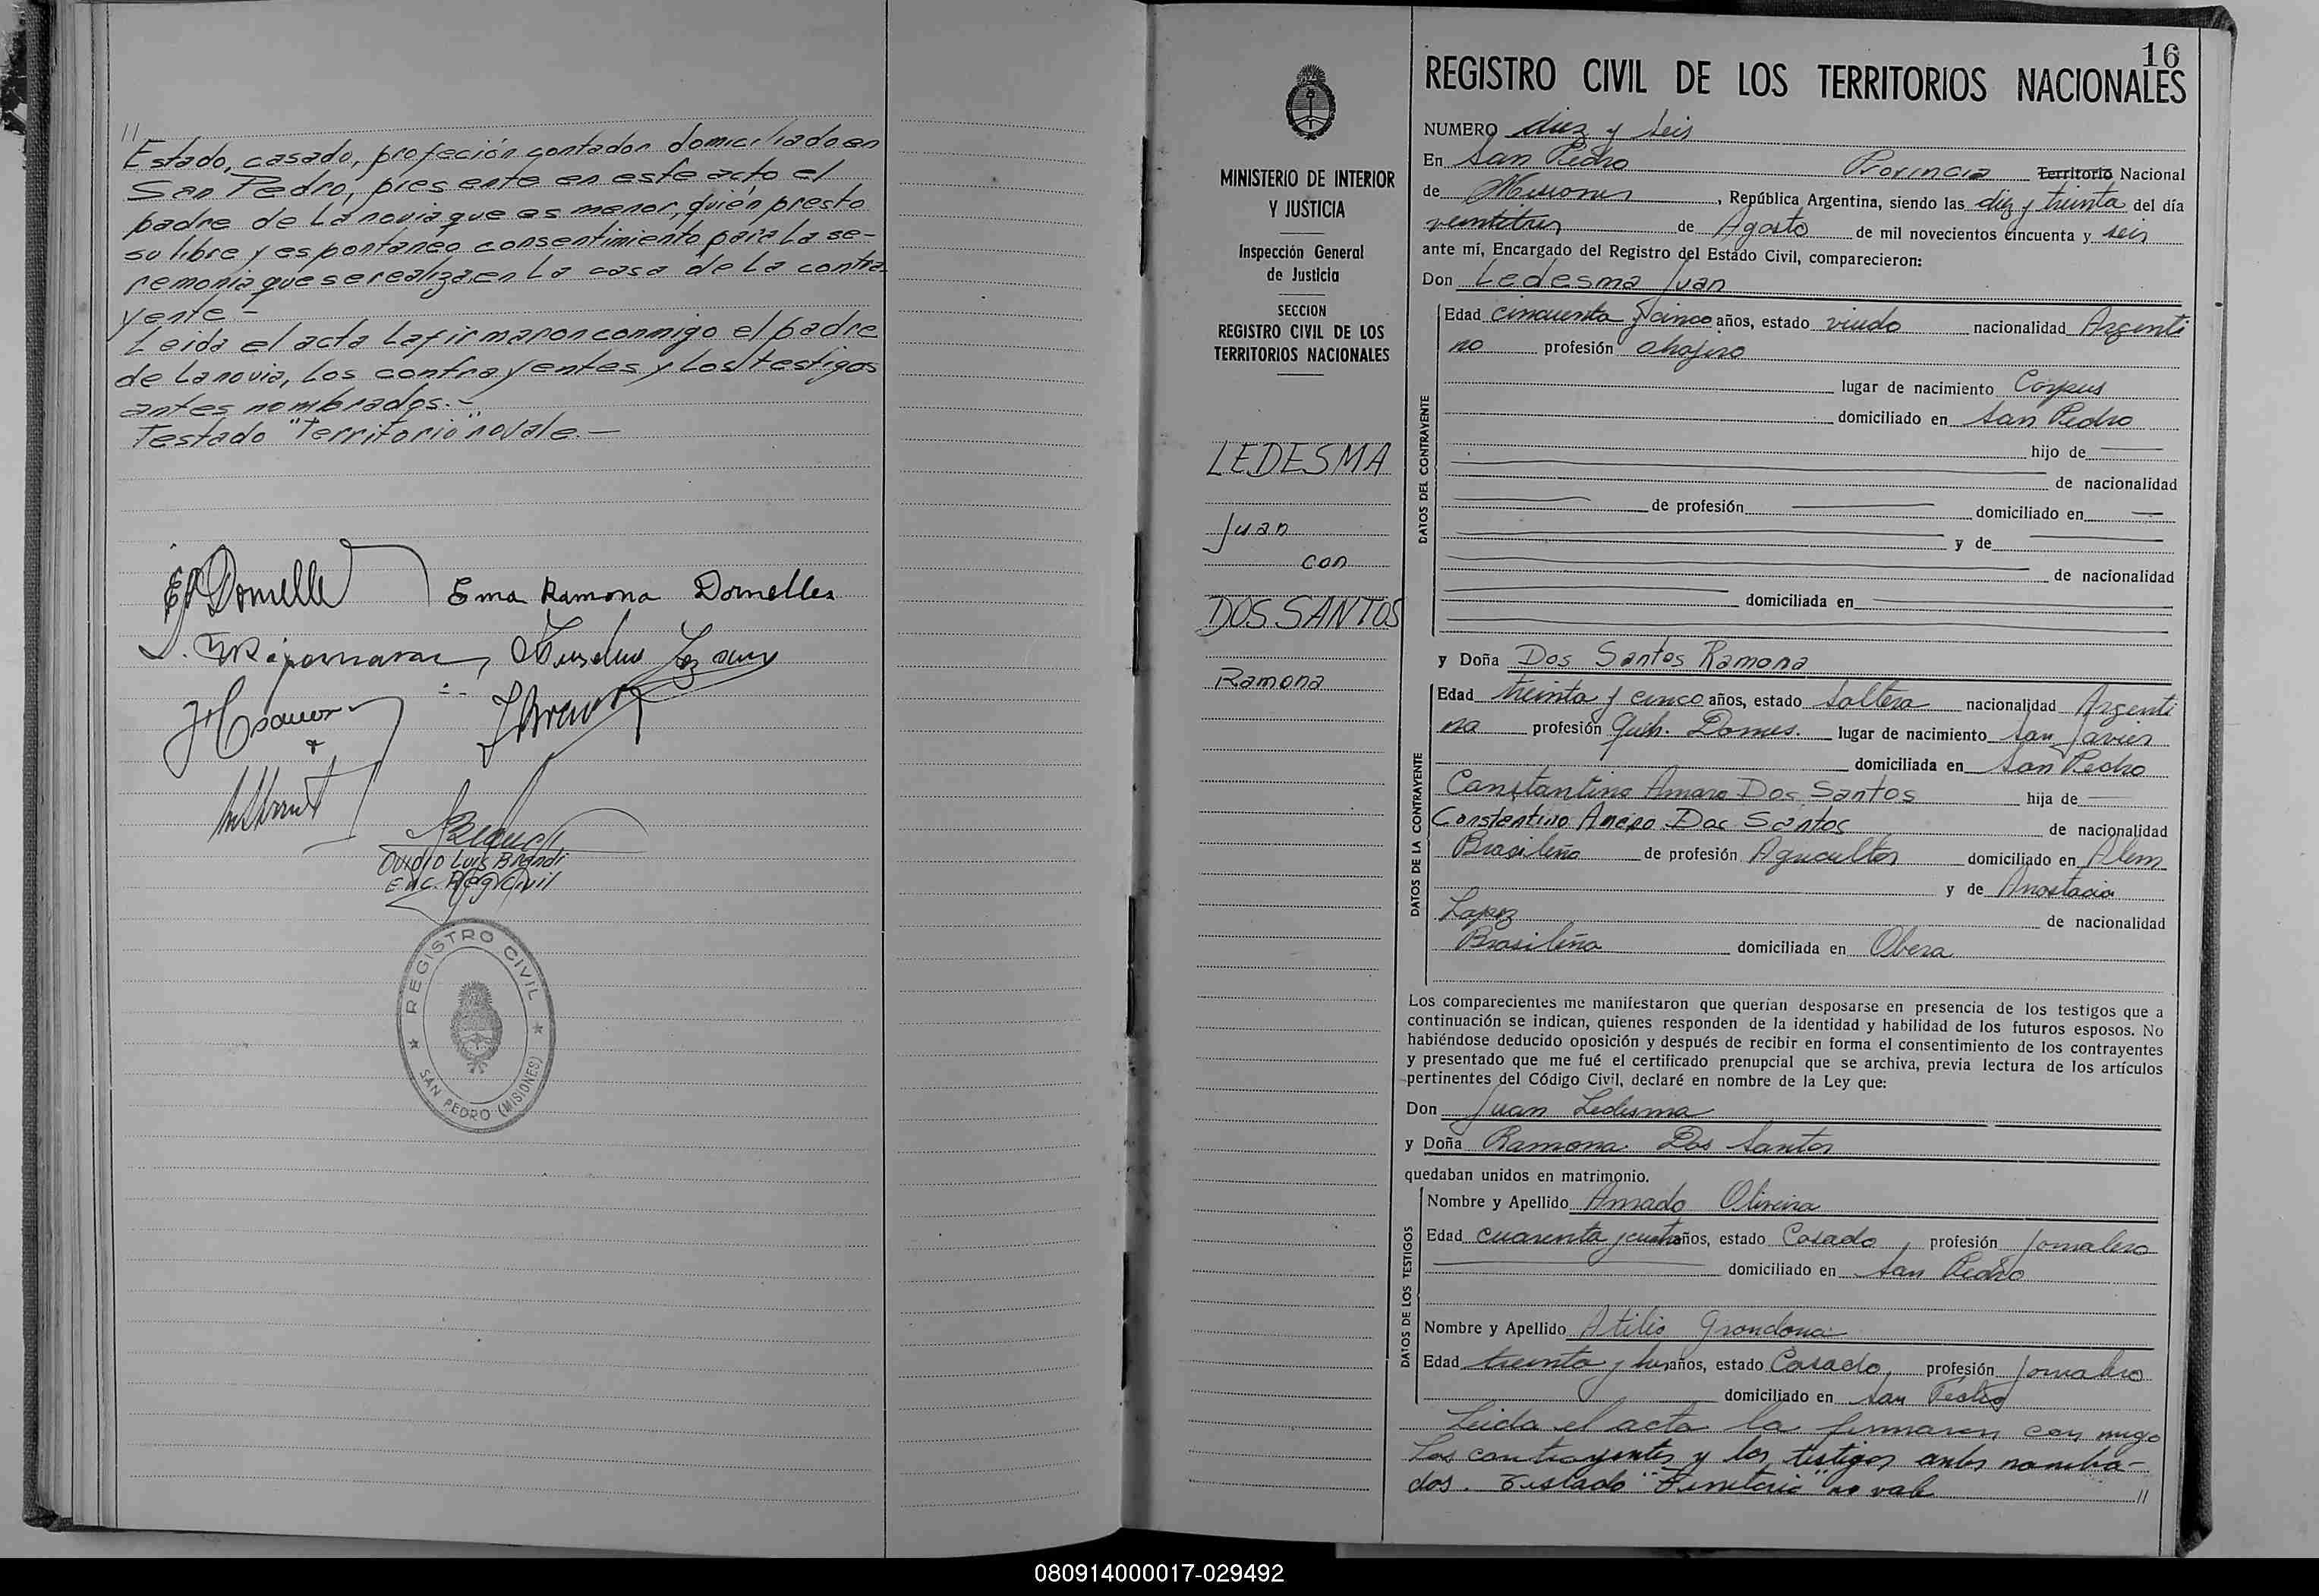 //
Estado, casado, profeción contador domiciliado en
San Pedro, presente en este acto el
padre de La novia que es menor, quién presto
su libre y espontaneo consentimiento para La se-
remonia que se realiza en La casa de La contra
yente.-
Leida el acta La firmaron conmigo el padre
de La novia, Los contrayentes y Los testigos
antes nombrados.-
Testado "Territorio" no vale.-
Ema Ramona Dornelles
Ovidio Luis Brandi
Enc. Reg Civil
REGISTRO CIVIL
SAN PEDRO (MISIONES)
16
REGISTRO CIVIL DE LOS TERRITORIOS NACIONALES
MINISTERIO DE INTERIOR
Y JUSTICIA
Inspección General
de Justicia
SECCION
REGISTRO CIVIL DE LOS
TERRITORIOS NACIONALES
LEDESMA
Juan
con
DOS SANTOS
Ramona
NUMERO diez y seis
En San Pedro Provincia Territorio Nacional
de Misiones, República Argentina, siendo las diez y treinta del día
veintitres de Agosto de mil novecientos cincuenta y seis
ante mí, Encargado del Registro del Estado Civil, comparecieron:
Don Ledesma Juan
DATOS DEL CONTRAYENTE
Edad cincuenta y cinco años, estado viudo nacionalidad Argenti
no profesión
lugar de nacimiento Corpus
domiciliado en San Pedro
hijo de
de nacionalidad
de profesión domiciliado en
y de
de nacionalidad
domiciliada en
y Doña Dos Santos Ramona
DATOS DE LA CONTRAYENTE
Edad treinta y cinco años, estado Soltera nacionalidad Argenti
na profesión Queh. Domes. lugar de nacimiento San Javier
domiciliada en San Pedro
Constantino Amaro Dos Santos hija de
Constantino Amaro Dos Santos de nacionalidad
Brasileño de profesión Agricultor domiciliado en Alem
y de Anastacia
Lopez de nacionalidad
Brasileña domiciliada en Obera
Los comparecientes me manifestaron que querían desposarse en presencia de los testigos que a
continuación se indican, quienes responden de la identidad y habilidad de los futuros esposos. No
habiéndose deducido oposición y después de recibir en forma el consentimiento de los contrayentes
y presentado que me fué el certificado prenupcial que se archiva, previa lectura de los artículos
pertinentes del Código Civil, declaré en nombre de la Ley que:
Don Juan Ledesma
y Doña Ramona Dos Santos
quedaban unidos en matrimonio.
DATOS DE LOS TESTIGOS
Nombre y Apellido Amado Oliveira
Edad cuarenta y cuatro años, estado Casado, profesión Jornalero
domiciliado en San Pedro
Nombre y Apellido Atilio Grondona
Edad treinta y tres años, estado Casado, profesión Jornalero
domiciliado en San Pedro
Leida el acta la firmaron con migo
Los contrayentes y los testigos antes nombra-
dos. Testado "Territorio" no vale //
080914000017-029492